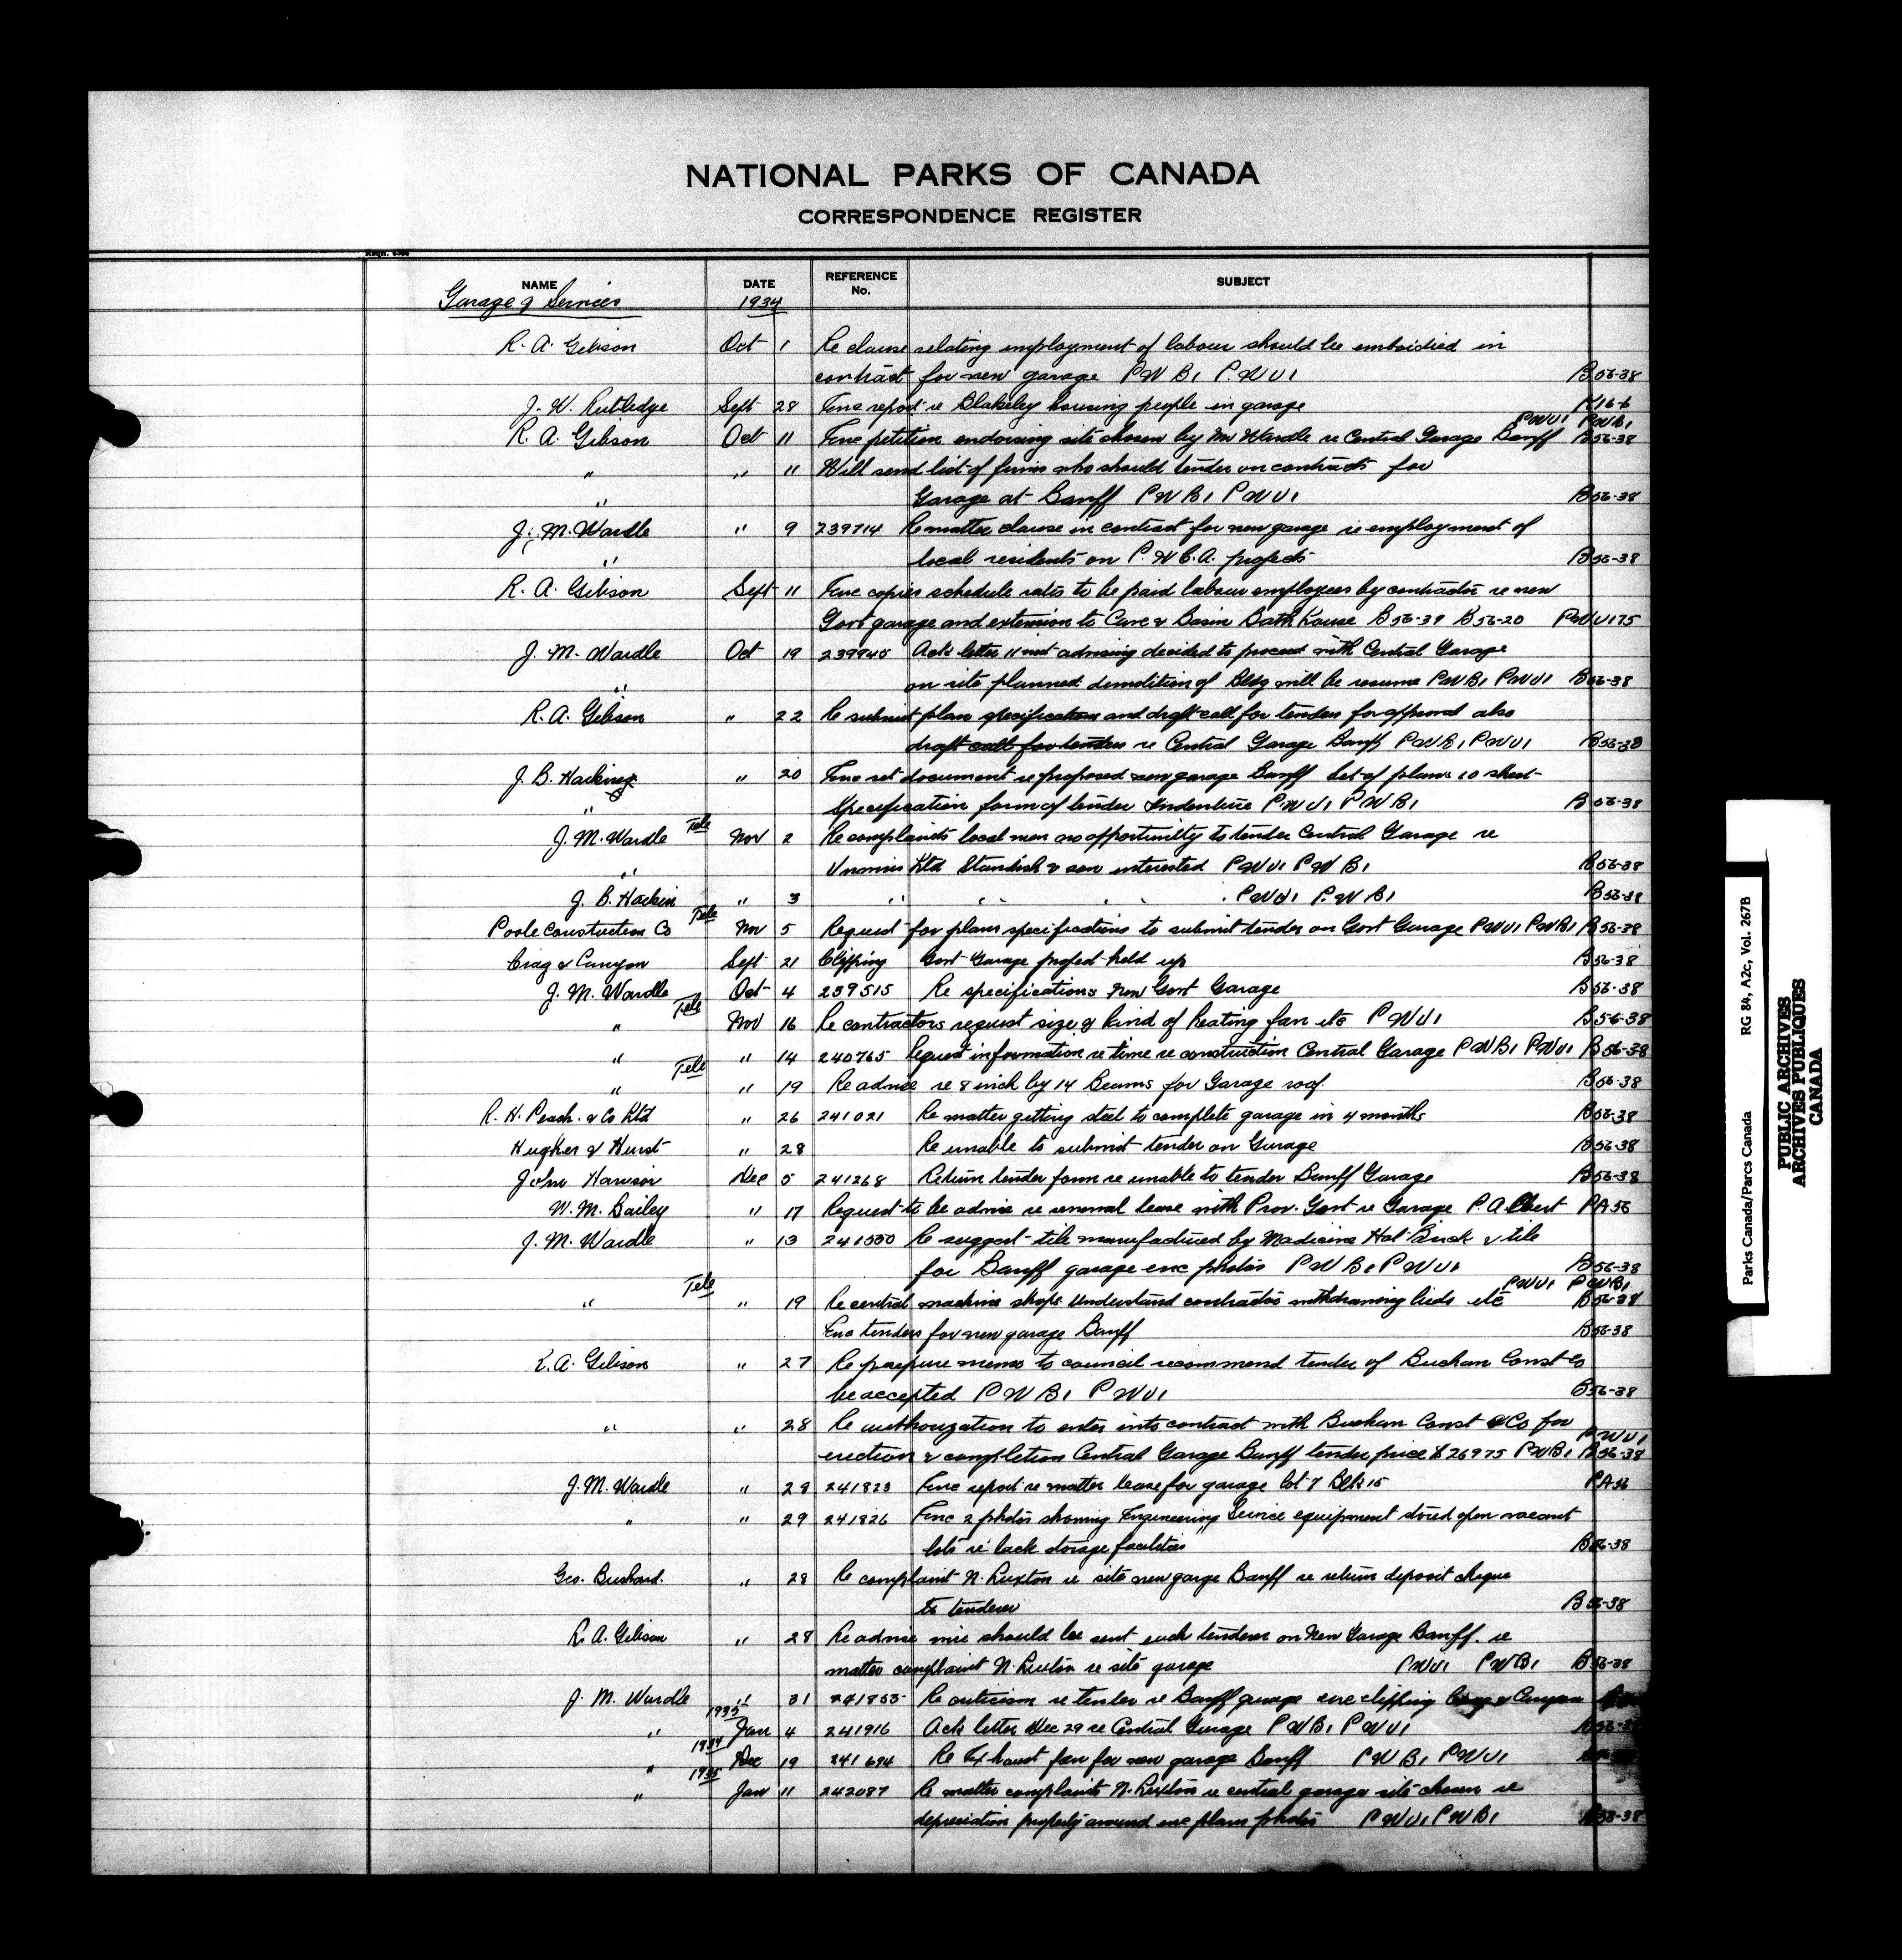 NATIONAL PARKS OF CANADA
CORRESPONDENCE REGISTER
NAME DATE REFERENCE No. SUBJECT
Garage & Services 1934
R. A. Gibson Oct 1 Re clause relating employment of labour should be emboidied in
contract for new garage PWB1 P.WU1 B56-38
J. W. Rutledge Sept 28 Enc report re Blakeley housing people in garage
PWU1 PWB1
R. A. Gibson Oct 11 Enc petition endorsing site chosen by Mr Wardle re Central Garage Banff B56-38
" " 11 Will send list of firms who should tender on contracts for
" Garage at Banff PWB1 PWU1 B56-38
J. M. Wardle " 9 239714 Re matter clause in contract for new garage re employment of
" local residents on P.W.C.A. projects B56-38
R. A. Gibson Sept 11 Enc copies schedule rates to be paid labour employees by contractor re new
Govt garage and extension to Cave & Basin Bath House B56-39 B56-20 PWU175
J. M. Wardle Oct 19 239945 Ack letter 11 inst advising decided to proceed with Central Garage
" on site planned demolition of Bldg will be resume PWB1 PWU1 B56-38
R. A. Gibson " 22 Re submit plans specifications and draft call for tenders for approval also
draft call for tenders re Central Garage Banff PWB1 PWU1 B56-38
J. B. Harkin " 20 Enc set document re proposed new garage Banff Set of plans 10 sheet
" Specification form of tender Indenture PWU1 PWB1 B56-38
J. M. Wardle Tele Nov 2 Re complaints local men no opportunity to tender Central Garage re
" Unwins Ltd Standish & son interested PWU1 PWB1 B56-38
J. B. Harkin " 3 " " " " PWU1 P.WB1 B56-38
Poole Construction Co Tele Nov 5 Request for plans specifications to submit tender on Govt Garage PWU1 PWB1 B56-38
Crag & Canyon Sept 21 Clipping Govt Garage project held up B56-38
J. M. Wardle Oct 4 239515 Re specifications New Govt Garage B56-38
" Tele Nov 16 Re contractors request size & kind of heating fan etc PWU1 B56-38
" " 14 240765 Request information re time re construction Central Garage PWB1 PWU1 B56-38
" Tele " 19 Re advise re 8 inch by 14 Beams for Garage roof. B56-38
R. H. Peach. & Co Ltd " 26 241021 Re matter getting steel to complete garage in 4 months B56-38
Hughes & Hurst " 28 Re unable to submit tender on Garage B56-38
John Harrison Dec 5 241268 Return tender form re unable to tender Banff Garage B56-38
W. M. Bailey " 17 Request to be advise re renewal lease with Prov. Govt re Garage P.Albert PA56
J. M. Wardle " 13 241550 Re suggest tile manufactured by Medicine Hat Brick & tile
for Banff garage enc photos PWB1 PWU1 B56-38
PWU1 PWB1
" Tele " 19 Re central machine shops understand contractors withdrawing bids etc B56-38
Enc tenders for new garage Banff B56-38
R. A. Gibson " 27 Re prepare memo to council recommend tender of Buchan Const Co
be accepted PWB1 PWU1 B56-38
" " 28 Re authorization to enter into contract with Buchan Const & Co for
PWU1
erection & completion Central Garage Banff tender price $26975 PWB1 B56-38
J. M. Wardle " 29 241823 Enc report re matter lease for garage lot 7 Blk 15 PA56
" " 29 241826 Enc 2 photos showing Engineering Service equipment stored open vacant
lots re lack storage facilities B56-38
Geo. " 28 Re complaint N. Luxton re site new garge Banff re return deposit cheque
to tenderer B56-38
R. A. Gibson " 28 Re advise wire should be sent each tenderer on New Garage Banff. re
matter complaint N. Luxton re site garage PWU1 PWB1 B56-38
J. M. Wardle " 31 241855 Re criticism re tender re Banff garage enc clipping Crag & Canyon
" 1935 Jan 4 241916 Ack letter Dec 29 re Central Garage PWB1 PWU1 B56-38
" 1934 Dec 19 241694 Re Exhaust fan for new garage Banff PWB1 PWU1
" 1935 Jan 11 242087 Re matter complaints N. Luxton re central garage site chosen re
depreciation property around enc plans photos PWU1 PWB1 B56-38
Parks Canada/Parcs Canada RG 84, A2c, Vol. 267B
PUBLIC ARCHIVES
ARCHIVES PUBLIQUES
CANADA